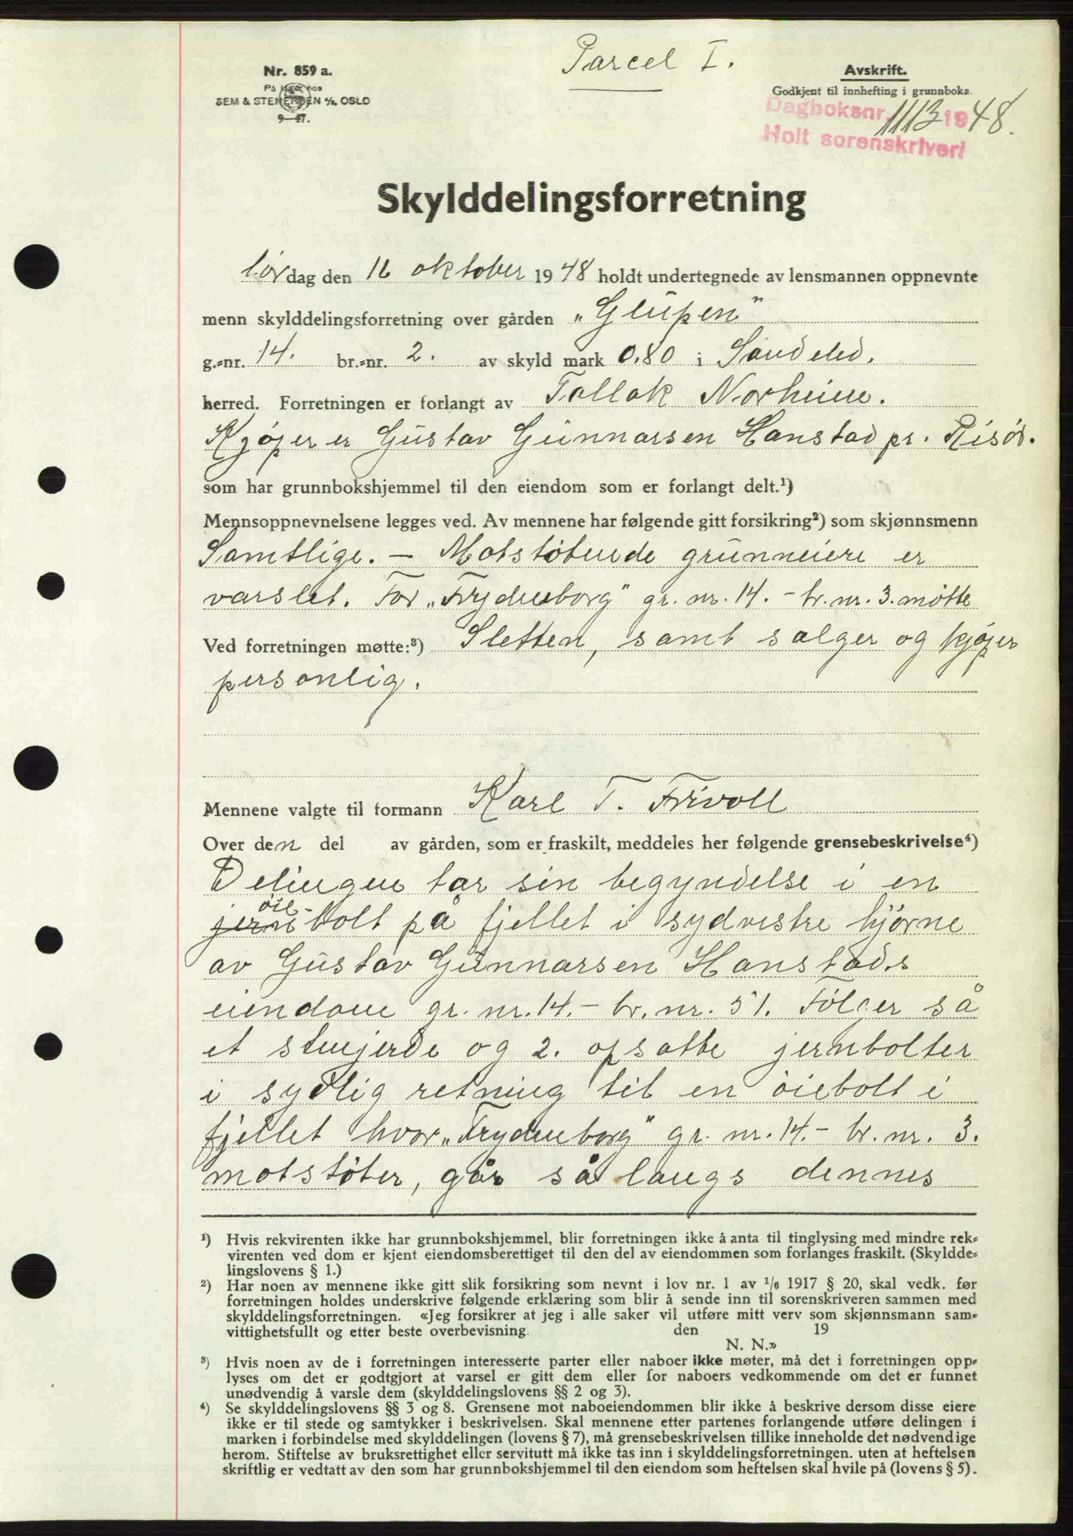 Parcel I.
Nr. 859 a.
På lager hos
SEM & STENERSEN A/S, OSLO
9—47.
Avskrift.
Godkjent til innhefting i grunnboka.
Dagboksnr. 1113 1948.
Holt sorenskriveri
Skylddelingsforretning
lørdag den 16 oktober 1948 holdt undertegnede av lensmannen oppnevnte
menn skylddelingsforretning over gården „Glüpen"
g.-nr. 14. br.-nr. 2. av skyld mark 0.80 i Søndeled.
herred. Forretningen er forlangt av Tallak Norheim.
Kjøper er Gustav Gunnarsen Hanstad pr. Risør.
som har grunnbokshjemmel til den eiendom som er forlangt delt.¹)
Mennsoppnevnelsene legges ved. Av mennene har følgende gitt forsikring²) som skjønnsmenn
Samtlige. – Motstøtende grunneiere er
varslet. For „Frydenborg" gr. nr. 14. – br. nr. 3. møtte
Ved forretningen møtte:³) Sletten, samt selger og kjøper
personlig.
Mennene valgte til formann Karl T. Frivoll
Over den del av gården, som er fraskilt, meddeles her følgende grensebeskrivelse⁴)
Delingen tar sin begyndelse i en
øie-
jernbolt på fjellet i sydvestre hjørne
av Gustav Gunnarsen Hanstads
eiendom gr. nr. 14. – br. nr. 51. Følger så
et stengjerde og 2. opsatte jernbolter
i sydlig retning til en øiebolt i
fjellet hvor „Frydenborg" gr. nr. 14. – br. nr. 3.
motstøter, går så langs dennes
¹) Hvis rekvirenten ikke har grunnbokshjemmel, blir forretningen ikke å anta til tinglysing med mindre rek-
virenten ved dom er kjent eiendomsberettiget til den del av eiendommen som forlanges fraskilt. (Skyldde-
lingslovens § 1.)
²) Har noen av mennene ikke gitt slik forsikring som nevnt i lov nr. 1 av 1/6 1917 § 20, skal vedk. før
forretningen holdes underskrive følgende erklæring som blir å sende inn til sorenskriveren sammen med
skylddelingsforretningen. «Jeg forsikrer at jeg i alle saker vil utføre mitt verv som skjønnsmann sam-
vittighetsfullt og etter beste overbevisning. den 19
N. N.»
³) Hvis noen av de i forretningen interesserte parter eller naboer ikke møter, må det i forretningen opp-
lyses om det er godtgjort at varsel er gitt dem eller for naboers vedkommende om det er funnet
unødvendig å varsle dem (skylddelingslovens §§ 2 og 3).
⁴) Se skylddelingslovens §§ 3 og 8. Grensene mot naboeiendommen blir ikke å beskrive dersom disse eiere
ikke er til stede og samtykker i beskrivelsen. Skal mennene etter partenes forlangende utføre delingen i
marken i forbindelse med skylddelingen (lovens § 7), må grensebeskrivelsen tillike inneholde det nødvendige
herom. Stiftelse av bruksrettighet eller servitutt må ikke tas inn i skylddelingsforretningen. uten at heftelsen
skriftlig er vedtatt av den som har grunnbokshjemmel til den eiendom som heftelsen skal hvile på (lovens § 5).